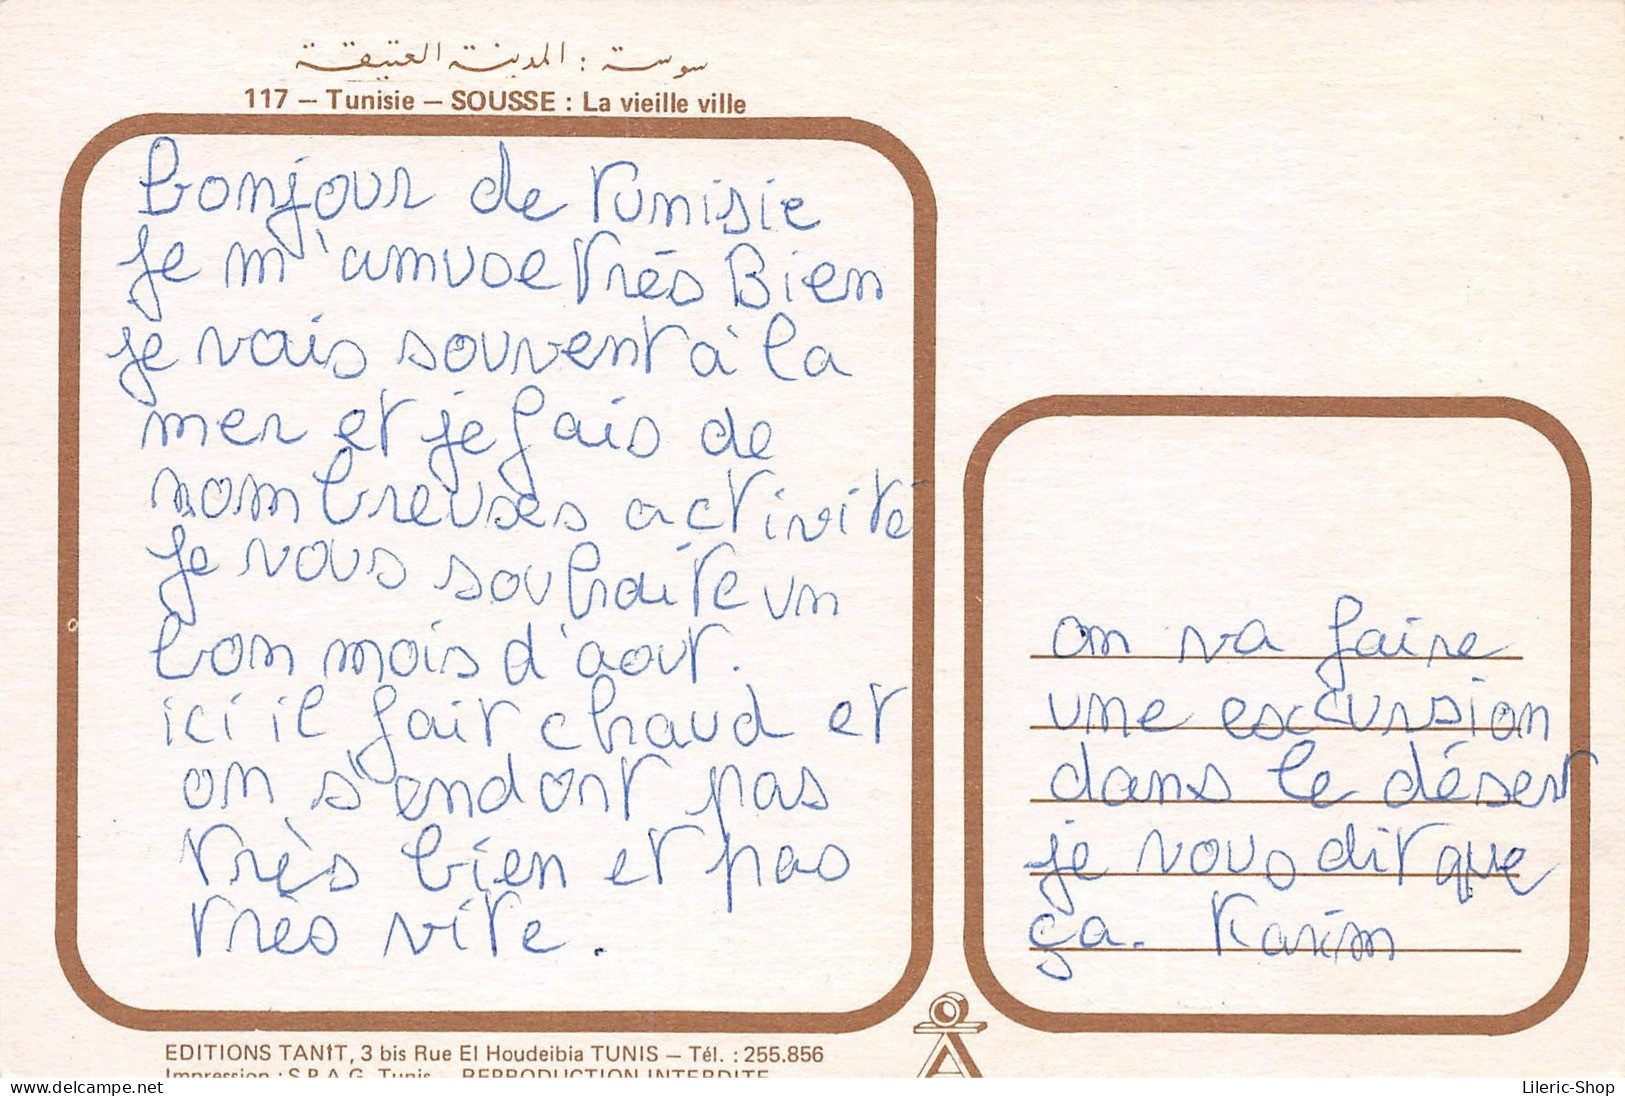 سوسة : المدينة العتيقة
117 – Tunisie – SOUSSE : La vieille ville
bonjour de Tunisie
je m'amuse très Bien
je vais souvent à la
mer et je fais de
nombreuses activité
je vous souhaite un
bon mois d'aout.
ici il fait chaud et
on s'endort pas
très bien et pas
très vite.
on va faire
une excursion
dans le désert
je vous dit que
ça. Karim
EDITIONS TANIT, 3 bis Rue El Houdeibia TUNIS – Tél. : 255.856
Impression : S.P.A.G. Tunis – REPRODUCTION INTERDITE
https://www.delcampe.net
Lileric-Shop